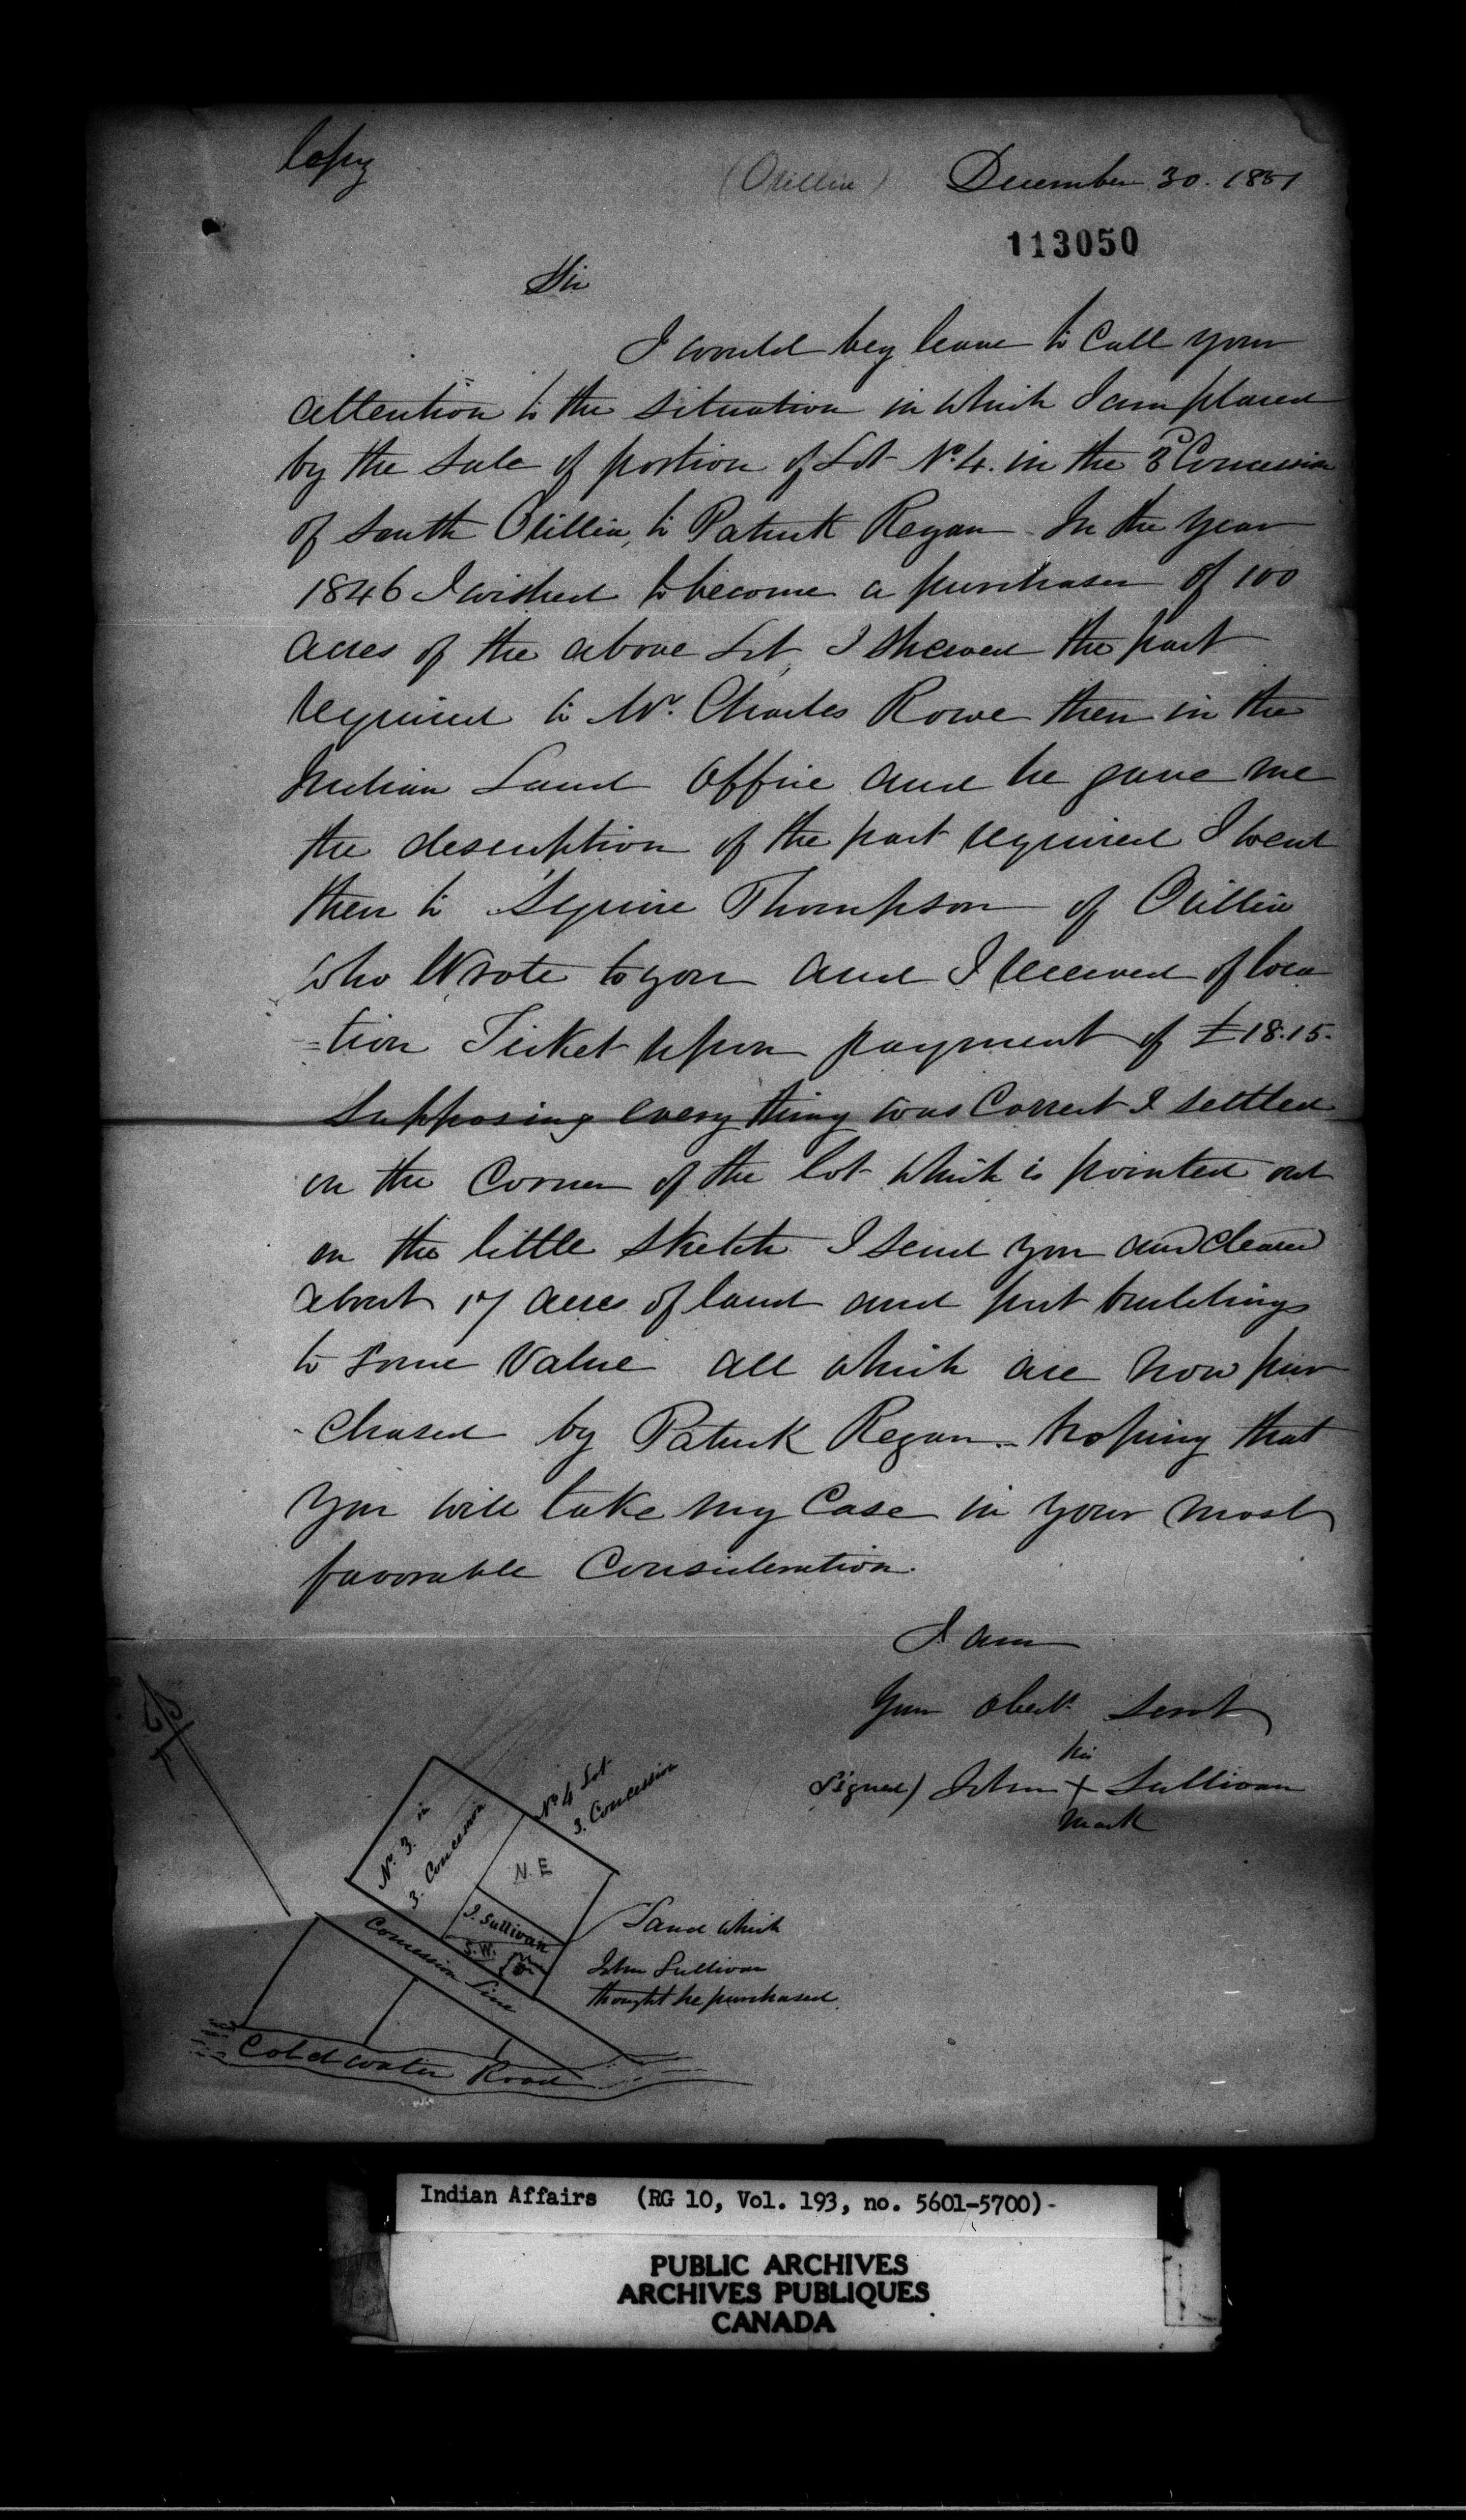 Copy
(Orillia) December 30. 1851
113050
Sir
I would beg leave to Call your
attention to the situation in which I am placed
by the sale of portion of Lot No. 4. in the 3d Concession
of South Orillia, to Patrick Regan - In the year
1846 I wished to become a purchaser of 100
acres of the above Lot, I shewed the part
required to Mr. Charles Rowe then in the
Indian Land Office and he gave me
the description of the part required I went
then to Squire Thompson of Orillia
who Wrote to you and I received of loca
=tion Ticket upon payment of £18.15.
Supposing every thing was Correct I settled
on the Corner of the lot which is pointed out
on the little sketch I send you and cleared
about 17 acres of land and put buildings
to some Value all which are now pur
-chased by Patrick Regan - hoping that
you will take my Case in your most
favorable Consideration.
I am
Your Obedt. Servt
his
Signed) John + Sullivan
mark
No. 3. in
3. Concession
No 4 Lot
3. Concession
N. E
J. Sullivan
S.W.
Concession Line
Land which
John Sullivan
thought he purchased.
Coldwater Road
Indian Affairs (RG 10, Vol. 193, no. 5601-5700)-
PUBLIC ARCHIVES
ARCHIVES PUBLIQUES
CANADA